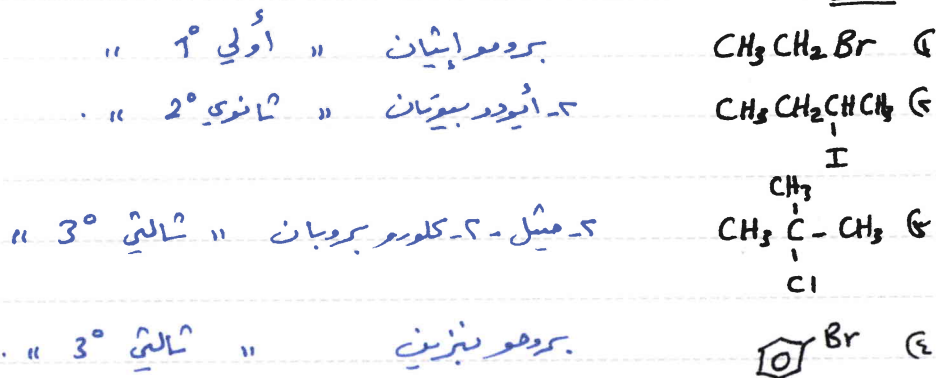 ١) CH3 CH2 Br برومو إيثان " أولي 1° "
٢) CH3 CH2 CH CH3 ٢- أيودو بيوتان " ثانوي 2° " .
I
CH3
٣) CH3 C - CH3 ٢- ميثل - ٢- كلورو بروبان " ثالثي 3° "
Cl
٤) Br برومو بنزين " ثالثي 3° " .